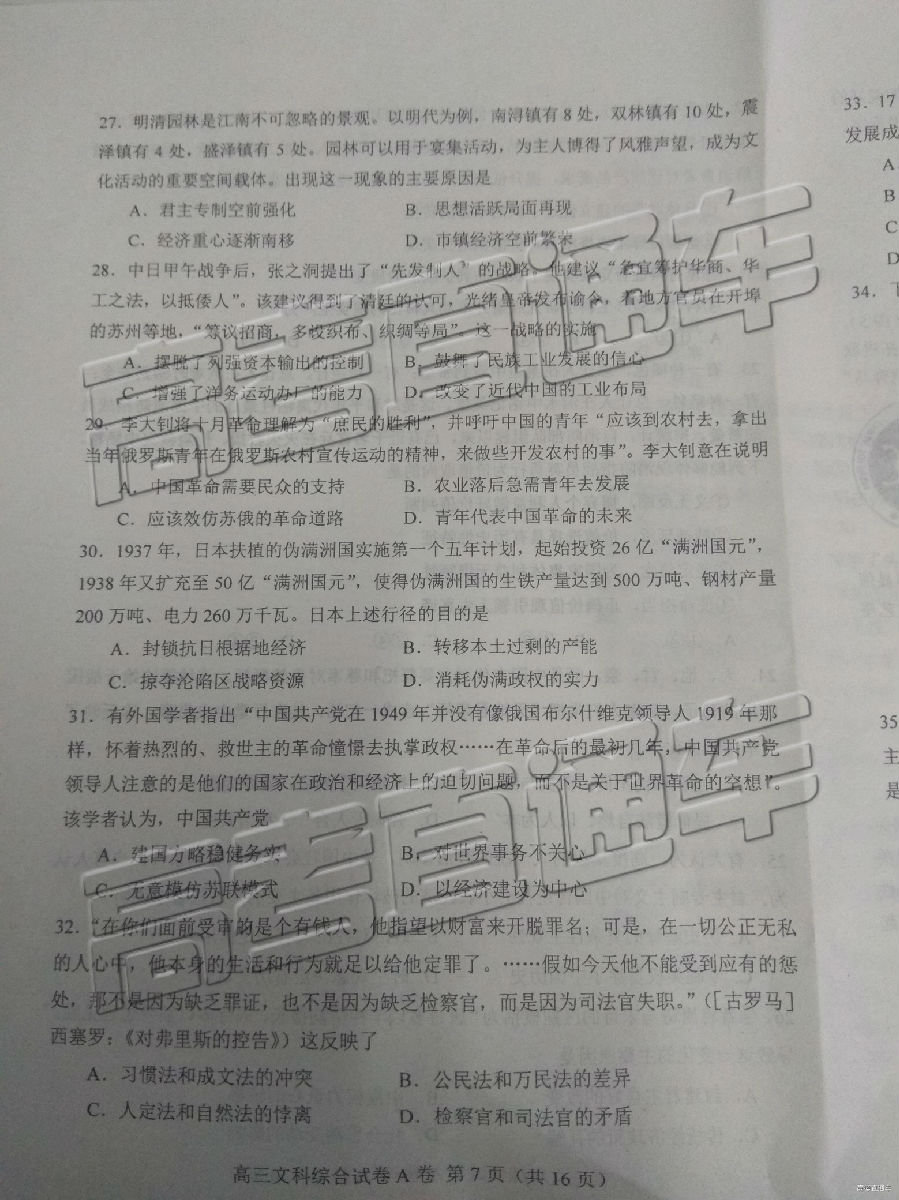 27．明清园林是江南不可忽略的景观。以明代为例，南浔镇有 8 处，双林镇有 10 处，震
泽镇有 4 处，盛泽镇有 5 处。园林可以用于宴集活动，为主人博得了风雅声望，成为文
化活动的重要空间载体。出现这一现象的主要原因是
A．君主专制空前强化 B．思想活跃局面再现
C．经济重心逐渐南移 D．市镇经济空前繁荣
28．中日甲午战争后，张之洞提出了“先发制人”的战略。他建议“急宜筹护华商、华
工之法，以抵倭人”。该建议得到了清廷的认可，光绪皇帝发布谕令，着地方官员在开埠
的苏州等地，“筹议招商，多设织布、织绸等局”。这一战略的实施
A．摆脱了列强资本输出的控制 B．鼓舞了民族工业发展的信心
C．增强了洋务运动办厂的能力 D．改变了近代中国的工业布局
29．李大钊将十月革命理解为“庶民的胜利”，并呼吁中国的青年“应该到农村去，拿出
当年俄罗斯青年在俄罗斯农村宣传运动的精神，来做些开发农村的事”。李大钊意在说明
A．中国革命需要民众的支持 B．农业落后急需青年去发展
C．应该效仿苏俄的革命道路 D．青年代表中国革命的未来
30．1937 年，日本扶植的伪满洲国实施第一个五年计划，起始投资 26 亿“满洲国元”，
1938 年又扩充至 50 亿“满洲国元”，使得伪满洲国的生铁产量达到 500 万吨、钢材产量
200 万吨、电力 260 万千瓦。日本上述行径的目的是
A．封锁抗日根据地经济 B．转移本土过剩的产能
C．掠夺沦陷区战略资源 D．消耗伪满政权的实力
31．有外国学者指出“中国共产党在 1949 年并没有像俄国布尔什维克领导人 1919 年那
样，怀着热烈的、救世主的革命憧憬去执掌政权……在革命后的最初几年，中国共产党
领导人注意的是他们的国家在政治和经济上的迫切问题，而不是关于世界革命的空想”。
该学者认为，中国共产党
A．建国方略稳健务实 B．对世界事务不关心
C．无意模仿苏联模式 D．以经济建设为中心
32．“在你们面前受审的是个有钱人，他指望以财富来开脱罪名；可是，在一切公正无私
的人心中，他本身的生活和行为就足以给他定罪了。……假如今天他不能受到应有的惩
处，那不是因为缺乏罪证，也不是因为缺乏检察官，而是因为司法官失职。”（［古罗马］
西塞罗：《对弗里斯的控告》）这反映了
A．习惯法和成文法的冲突 B．公民法和万民法的差异
C．人定法和自然法的悖离 D．检察官和司法官的矛盾
高三文科综合试卷 A 卷 第 7 页（共 16 页）
33．17
发展成
A
B
C
D
34．
35
主
是
高考直通车
高考直通车